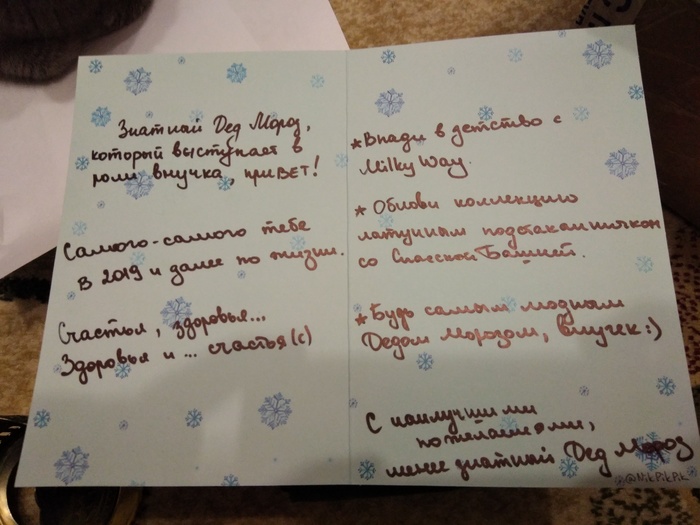 Знатный Дед Мороз,
который выступает в
роли внучка, приВЕТ!
Самого-самого тебе
в 2019 и далее по жизни.
Счастья, здоровья...
Здоровья и ... счастья(с)
*Впади в детство с
Milky Way.
* Обнови коллекцию
латунным подстаканничком
со Спасской Башней.
*Будь самым модным
Дедом Морозом, внучек:)
С наилучшими
пожеланиями,
менее знатный Дед Мороз
@NikPikPik